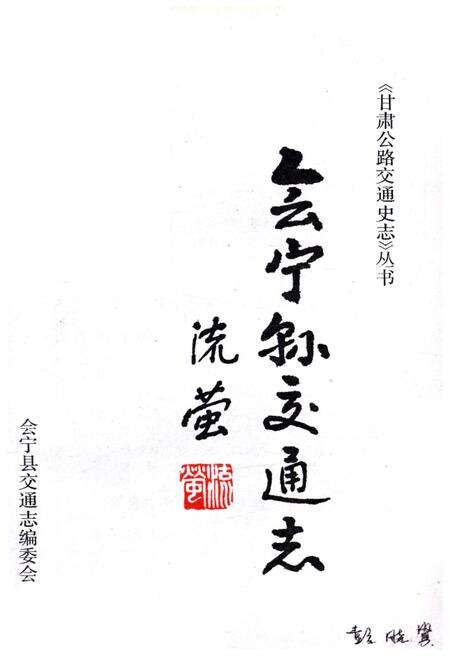 《甘肃公路交通史志》丛书
会宁县交通志
流萤
流萤
会宁县交通志编委会
彭晓